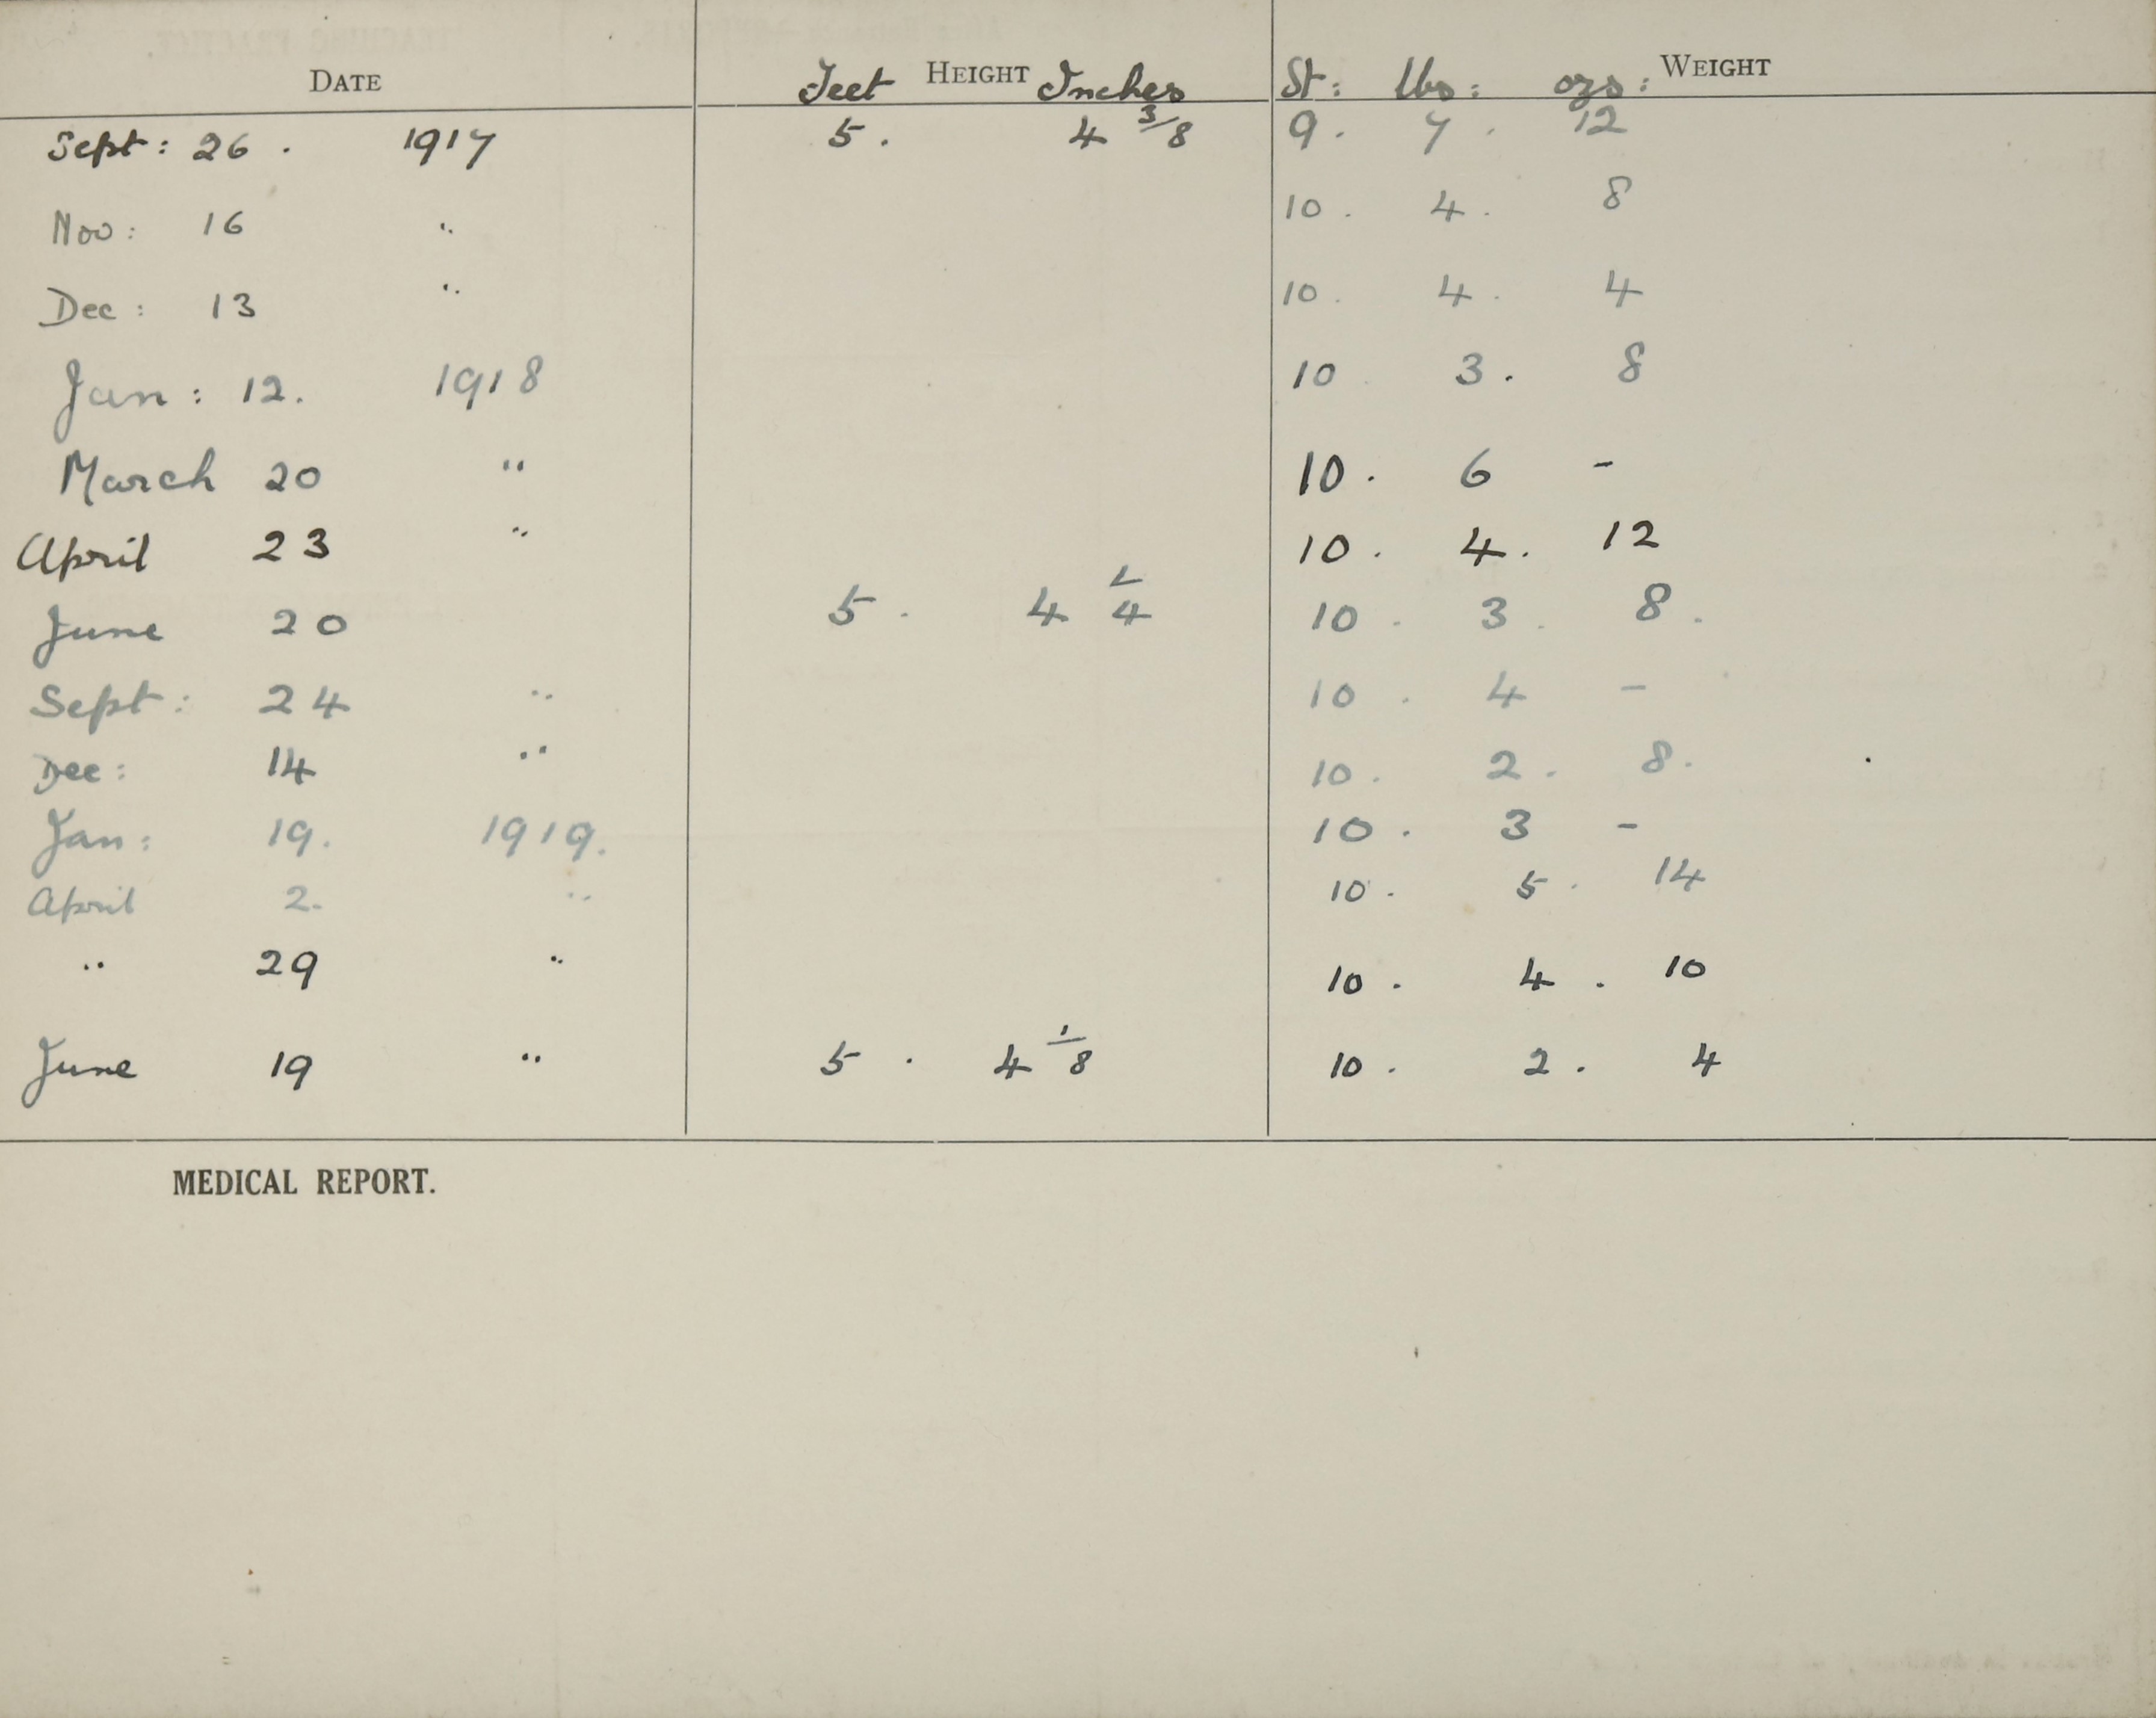 DATE Feet HEIGHT Inches St: lbs: ozs: WEIGHT
Sept: 26. 1917 5. 4 3/8 9. 7. 12
Nov: 16 " 10. 4. 8
Dec: 13 " 10. 4. 4
Jan: 12. 1918 10 3. 8
March 20 " 10. 6 -
April 23 " 10. 4. 12
June 20 5. 4 1/4 10. 3. 8.
Sept: 24 " 10. 4 -
Dec: 14 " 10. 2. 8.
Jan: 19. 1919. 10. 3 -
April 2. " 10. 5. 14
" 29 " 10. 4. 10
June 19 " 5. 4 1/8 10. 2. 4
MEDICAL REPORT.